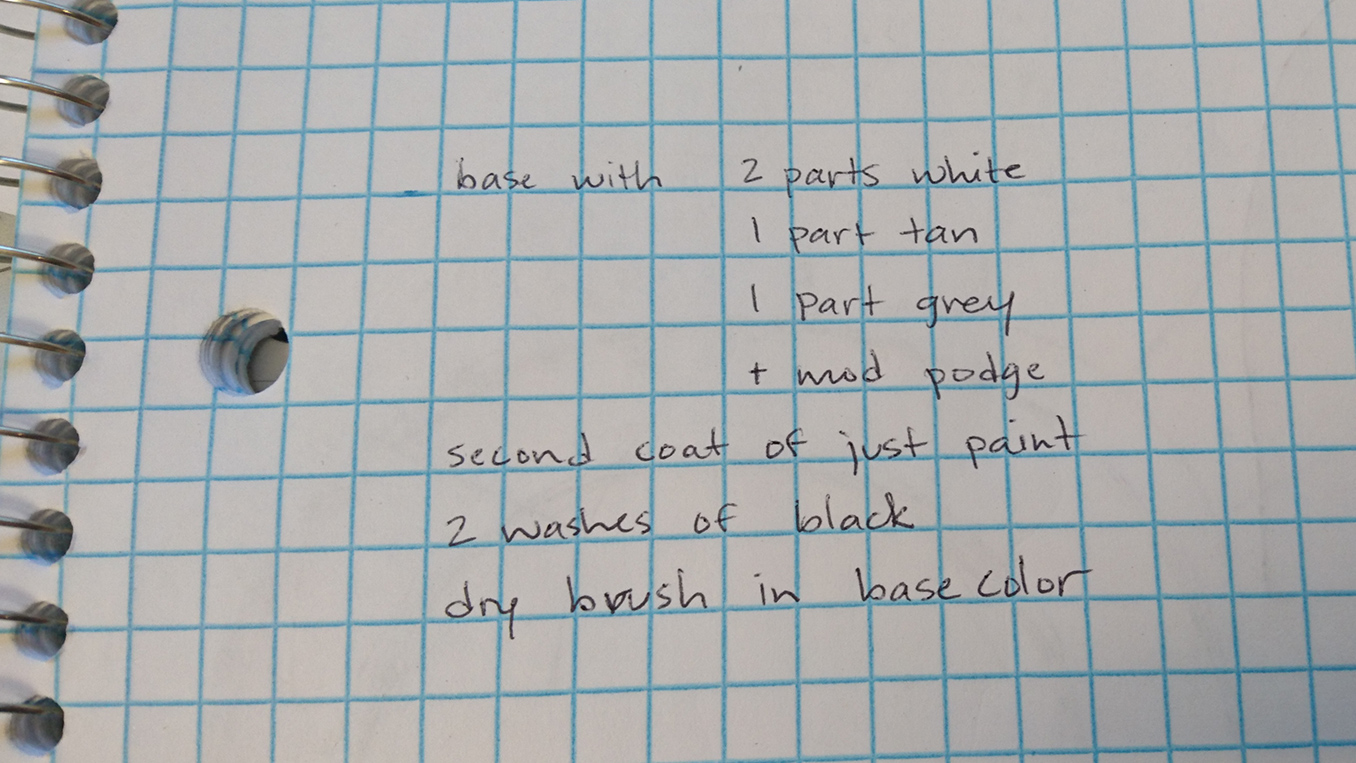 base with 2 parts white
1 part tan
1 part grey
+ mod podge
second coat of just paint
2 washes of black
dry brush in base color